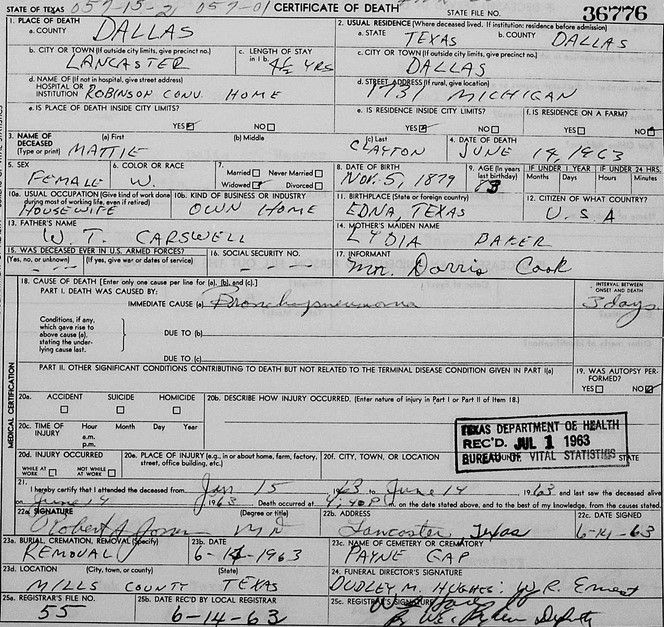 STATE OF TEXAS 057-15-2 057-01 CERTIFICATE OF DEATH STATE FILE NO. 36776
1. PLACE OF DEATH
a. COUNTY DALLAS
2. USUAL RESIDENCE (Where deceased lived. If institution: residence before admission)
a. STATE TEXAS b. COUNTY DALLAS
b. CITY OR TOWN (If outside city limits, give precinct no.) LANCASTER
c. LENGTH OF STAY in 1 b. 4½ YRS
c. CITY OR TOWN (If outside city limits, give precinct no.) DALLAS
d. NAME OF (If not in hospital, give street address) HOSPITAL OR INSTITUTION ROBINSON CONV. HOME
d. STREET ADDRESS (If rural, give location) 1731 MICHIGAN
e. IS PLACE OF DEATH INSIDE CITY LIMITS? YES NO
e. IS RESIDENCE INSIDE CITY LIMITS? YES NO
f. IS RESIDENCE ON A FARM? YES NO
3. NAME OF DECEASED (Type or print) (a) First MATTIE (b) Middle (c) Last CLAYTON
4. DATE OF DEATH JUNE 14, 1963
5. SEX FEMALE
6. COLOR OR RACE W.
7. Married Never Married Widowed Divorced
8. DATE OF BIRTH NOV. 5, 1879
9. AGE (In years last birthday) 83
IF UNDER 1 YEAR Months Days
IF UNDER 24 HRS. Hours Minutes
10a. USUAL OCCUPATION (Give kind of work done during most of working life, even if retired) HOUSEWIFE
10b. KIND OF BUSINESS OR INDUSTRY OWN HOME
11. BIRTHPLACE (State or foreign country) EDNA, TEXAS
12. CITIZEN OF WHAT COUNTRY? U.S.A
13. FATHER'S NAME W. T. CARSWELL
14. MOTHER'S MAIDEN NAME LYDIA BAKER
15. WAS DECEASED EVER IN U.S. ARMED FORCES? (Yes, no, or unknown) (If yes, give war or dates of service)
16. SOCIAL SECURITY NO.
17. INFORMANT Mrs. Dorris Cook
18. CAUSE OF DEATH [Enter only one cause per line for (a), (b), and (c).]
PART I. DEATH WAS CAUSED BY:
IMMEDIATE CAUSE (a) Bronchopneumonia
INTERVAL BETWEEN ONSET AND DEATH 3 days
Conditions, if any, which gave rise to above cause (a), stating the underlying cause last.
DUE TO (b)
DUE TO (c)
PART II. OTHER SIGNIFICANT CONDITIONS CONTRIBUTING TO DEATH BUT NOT RELATED TO THE TERMINAL DISEASE CONDITION GIVEN IN PART I(a)
19. WAS AUTOPSY PERFORMED? YES NO
MEDICAL CERTIFICATION
20a. ACCIDENT SUICIDE HOMICIDE
20b. DESCRIBE HOW INJURY OCCURRED. (Enter nature of injury in Part I or Part II of Item 18.)
20c. TIME OF INJURY Hour a.m. p.m. Month Day Year
TEXAS DEPARTMENT OF HEALTH
REC'D. JUL 1 1963
BUREAU OF VITAL STATISTICS
20d. INJURY OCCURRED WHILE AT WORK NOT WHILE AT WORK
20e. PLACE OF INJURY (e.g., in or about home, farm, factory, street, office building, etc.)
20f. CITY, TOWN, OR LOCATION STATE
21. I hereby certify that I attended the deceased from Jan 15 1963 to June 14 1963 and last saw the deceased alive
on June 14 1963 Death occurred at 4:40 P m. on the date stated above, and to the best of my knowledge, from the causes stated.
22a. SIGNATURE (Degree or title) Robert A. MD
22b. ADDRESS Lancaster, Texas
22c. DATE SIGNED 6-14-63
23a. BURIAL, CREMATION, REMOVAL (Specify) REMOVAL
23b. DATE 6-14-1963
23c. NAME OF CEMETERY OR CREMATORY PAYNE GAP
23d. LOCATION (City, town, or county) (State) MILLS COUNTY TEXAS
24. FUNERAL DIRECTOR'S SIGNATURE DUDLEY M. HUGHES: W.R. Ernest
25a. REGISTRAR'S FILE NO. 55
25b. DATE REC'D BY LOCAL REGISTRAR 6-14-63
25c. REGISTRAR'S SIGNATURE Deputy